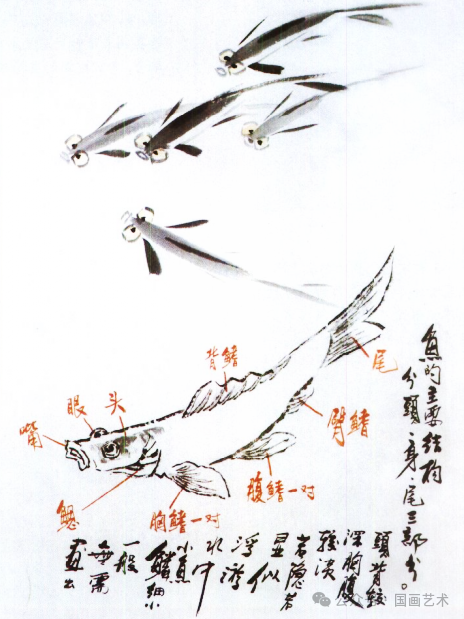 背鳍
尾
头
眼
嘴
臀鳍
腹鳍一对
胸鳍一对
鳃
魚的主要结构
分頭、身、尾三部分。
頭背較
深胸腹
較淡
若隐若
显似
浮游
水中
小魚
鳍细小
一般
無需
画出
公众号 · 国画艺术